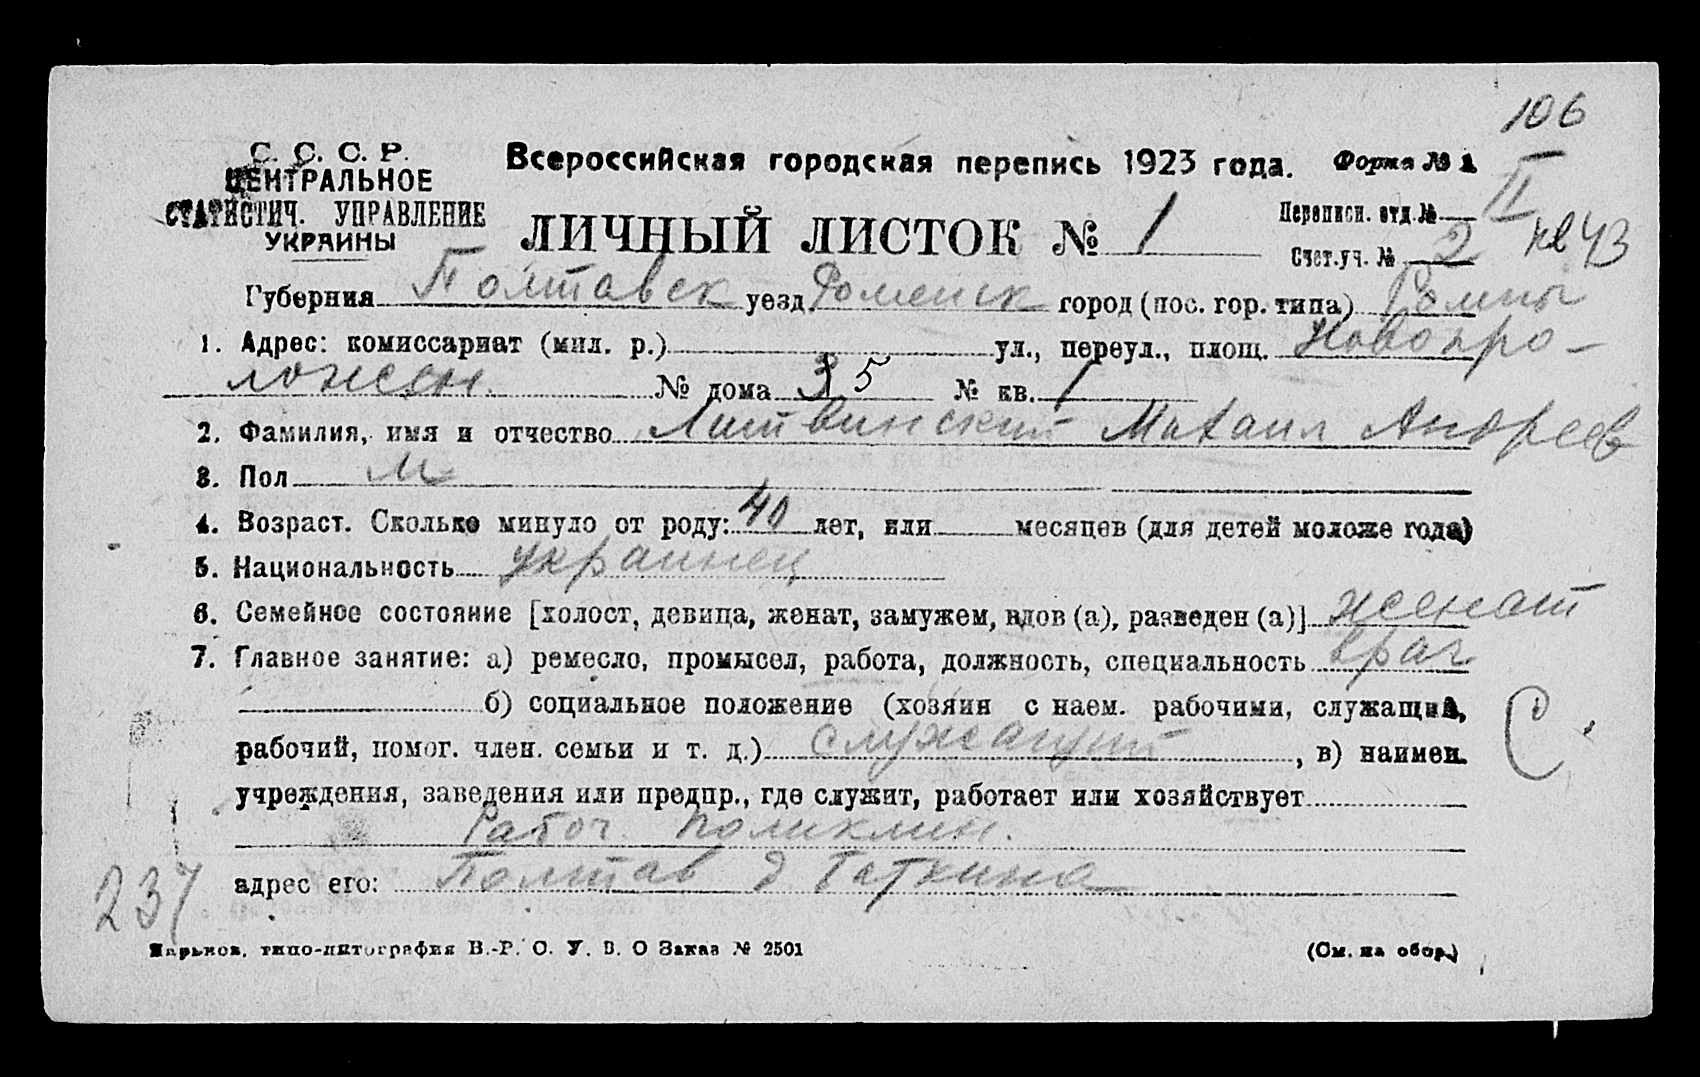 106
С. С. С. Р.
ЦЕНТРАЛЬНОЕ
СТАТИСТИЧ. УПРАВЛЕНИЕ
УКРАИНЫ
Всероссийская городская перепись 1923 года. Форма № 1
ЛИЧНЫЙ ЛИСТОК № 1
Переписн. отд. № II
Счет. уч. № 2 кв 43
Губерния Полтавск уезд Роменск город (пос. гор. типа) Ромны
1. Адрес: комиссариат (мил. р.) ул., переул., площ. Новопро-
ложен. № дома 35 № кв. 1
2. Фамилия, имя и отчество Литвинский Михаил Андреев
3. Пол м
4. Возраст. Сколько минуло от роду: 40 лет, или месяцев (для детей моложе года)
5. Национальность украинец
6. Семейное состояние [холост, девица, женат, замужем, вдов (а), разведен (а)] женат
7. Главное занятие: а) ремесло, промысел, работа, должность, специальность врач
б) социальное положение (хозяин с наем. рабочими, служащий,
рабочий, помог. член. семьи и т. д.) служащий, в) наимен.
учреждения, заведения или предпр., где служит, работает или хозяйствует
Рабоч. поликлин.
адрес его: Полтав
С.
237
Харьков, типо-литография В.-Р. С. У. В. О Заказ № 2501
(См. на обор.)